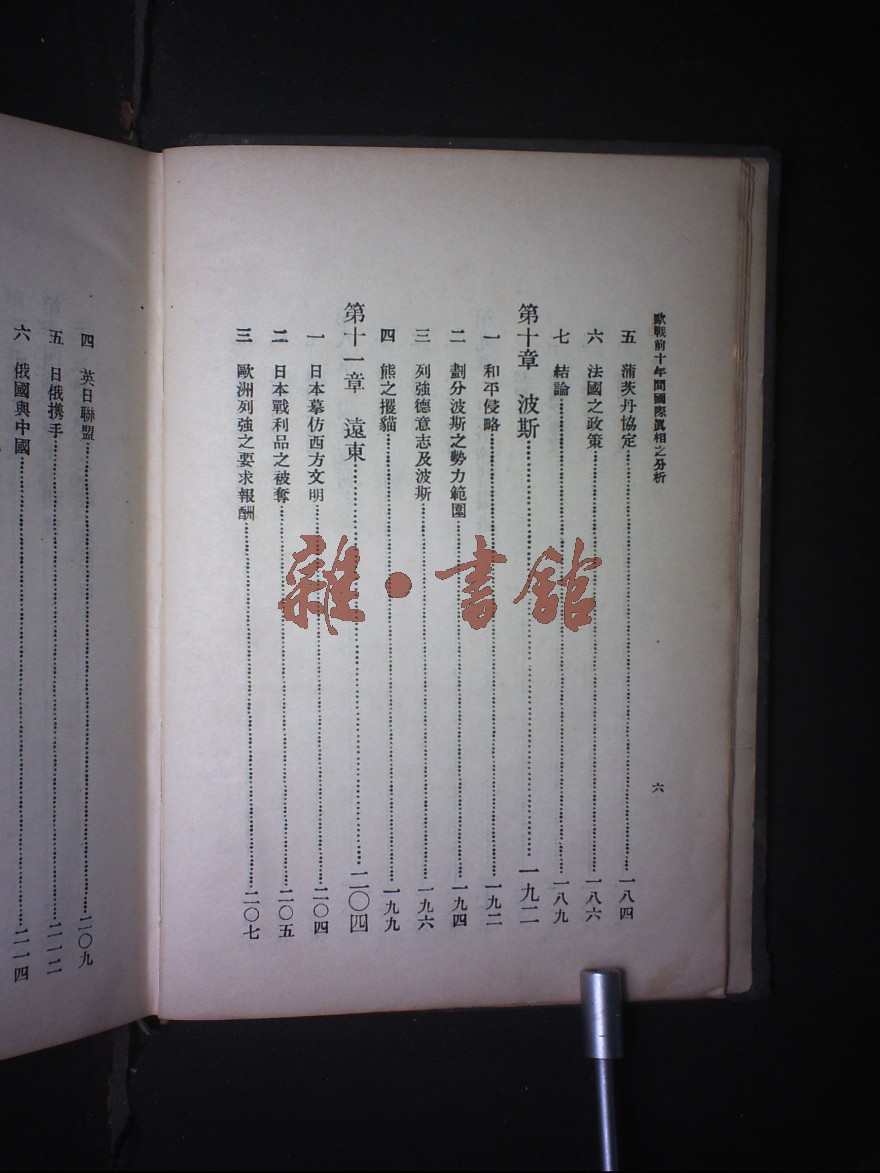 歐戰前十年間國際眞相之分析
六
五 蒲茨丹協定……一八四
六 法國之政策……一八六
七 結論……一八九
第十章 波斯……一九二
一 和平侵略……一九二
二 劃分波斯之勢力範圍……一九四
三 列強德意志及波斯……一九六
四 熊之攫貓……一九九
第十一章 遠東……二〇四
一 日本摹仿西方文明……二〇四
二 日本戰利品之被奪……二〇五
三 歐洲列強之要求報酬……二〇七
四 英日聯盟……二〇九
五 日俄攜手……二一二
六 俄國與中國……二一四
雜·書館